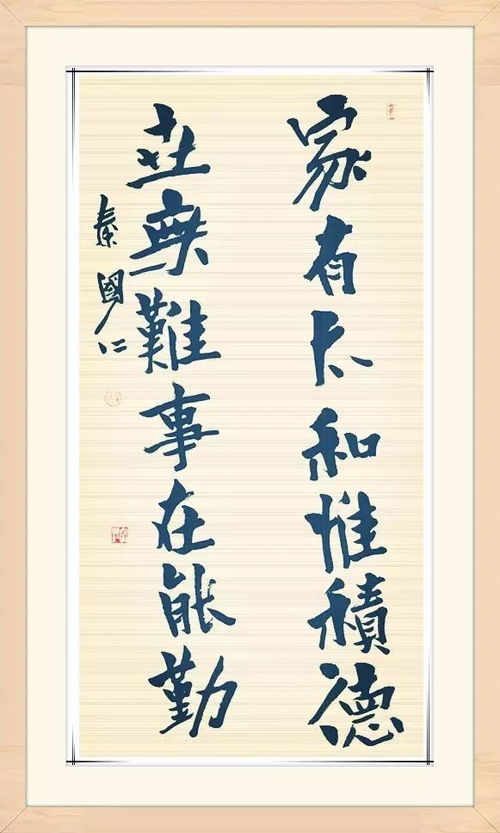 家有太和惟積德
世無難事在能勤
秦國仁